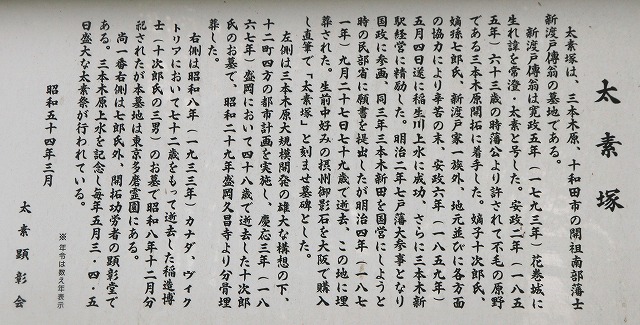 太素塚
太素塚は、三本木原、十和田市の開祖南部藩士
新渡戸傳翁の墓地である。
新渡戸傳翁は寛政五年（一七九三年）花巻城に
生れ諱を常澄・太素と号した。安政二年（一八五
五年）六十三歳の時藩公より許されて不毛の原野
である三本木原開拓に着手した。嫡子十次郎氏、
嫡孫七郎氏、新渡戸家一族外、地元並びに各方面
の協力により辛苦の末、安政六年（一八五九年）
五月四日遂に稲生川上水に成功、さらに三本木新
駅経営に精励した。明治二年七戸藩大参事となり
国政に参画、同三年三本木新田を国営にしようと
時の民部省に願書を提出したが明治四年（一八七
一年）九月二十七日七十九歳で逝去、この地に埋
葬された。生前中好みの摂州御影石を大阪で購入
し直筆で「太素塚」と刻ませ墓碑とした。
左側は三本木原大規模開発の雄大な構想の下、
十二町四方の都市計画を実施し、慶応三年（一八
六七年）盛岡において四十八歳で逝去した十次郎
氏のお墓で、昭和二十九年盛岡久昌寺より分骨埋
葬した。
右側は昭和八年（一九三三年）カナダ、ヴィク
トリアにおいて七十二歳をもって逝去した稲造博
士（十次郎氏の三男）のお墓で昭和八年十二月分
祀されたが本墓地は東京多磨霊園にある。
尚一番右側は七郎氏外、開拓功労者の顕彰堂で
ある。三本木原上水を記念し毎年五月三・四・五
日盛大な太素祭が行われている。
※年令は数え年表示
昭和五十四年三月
太素顕彰会